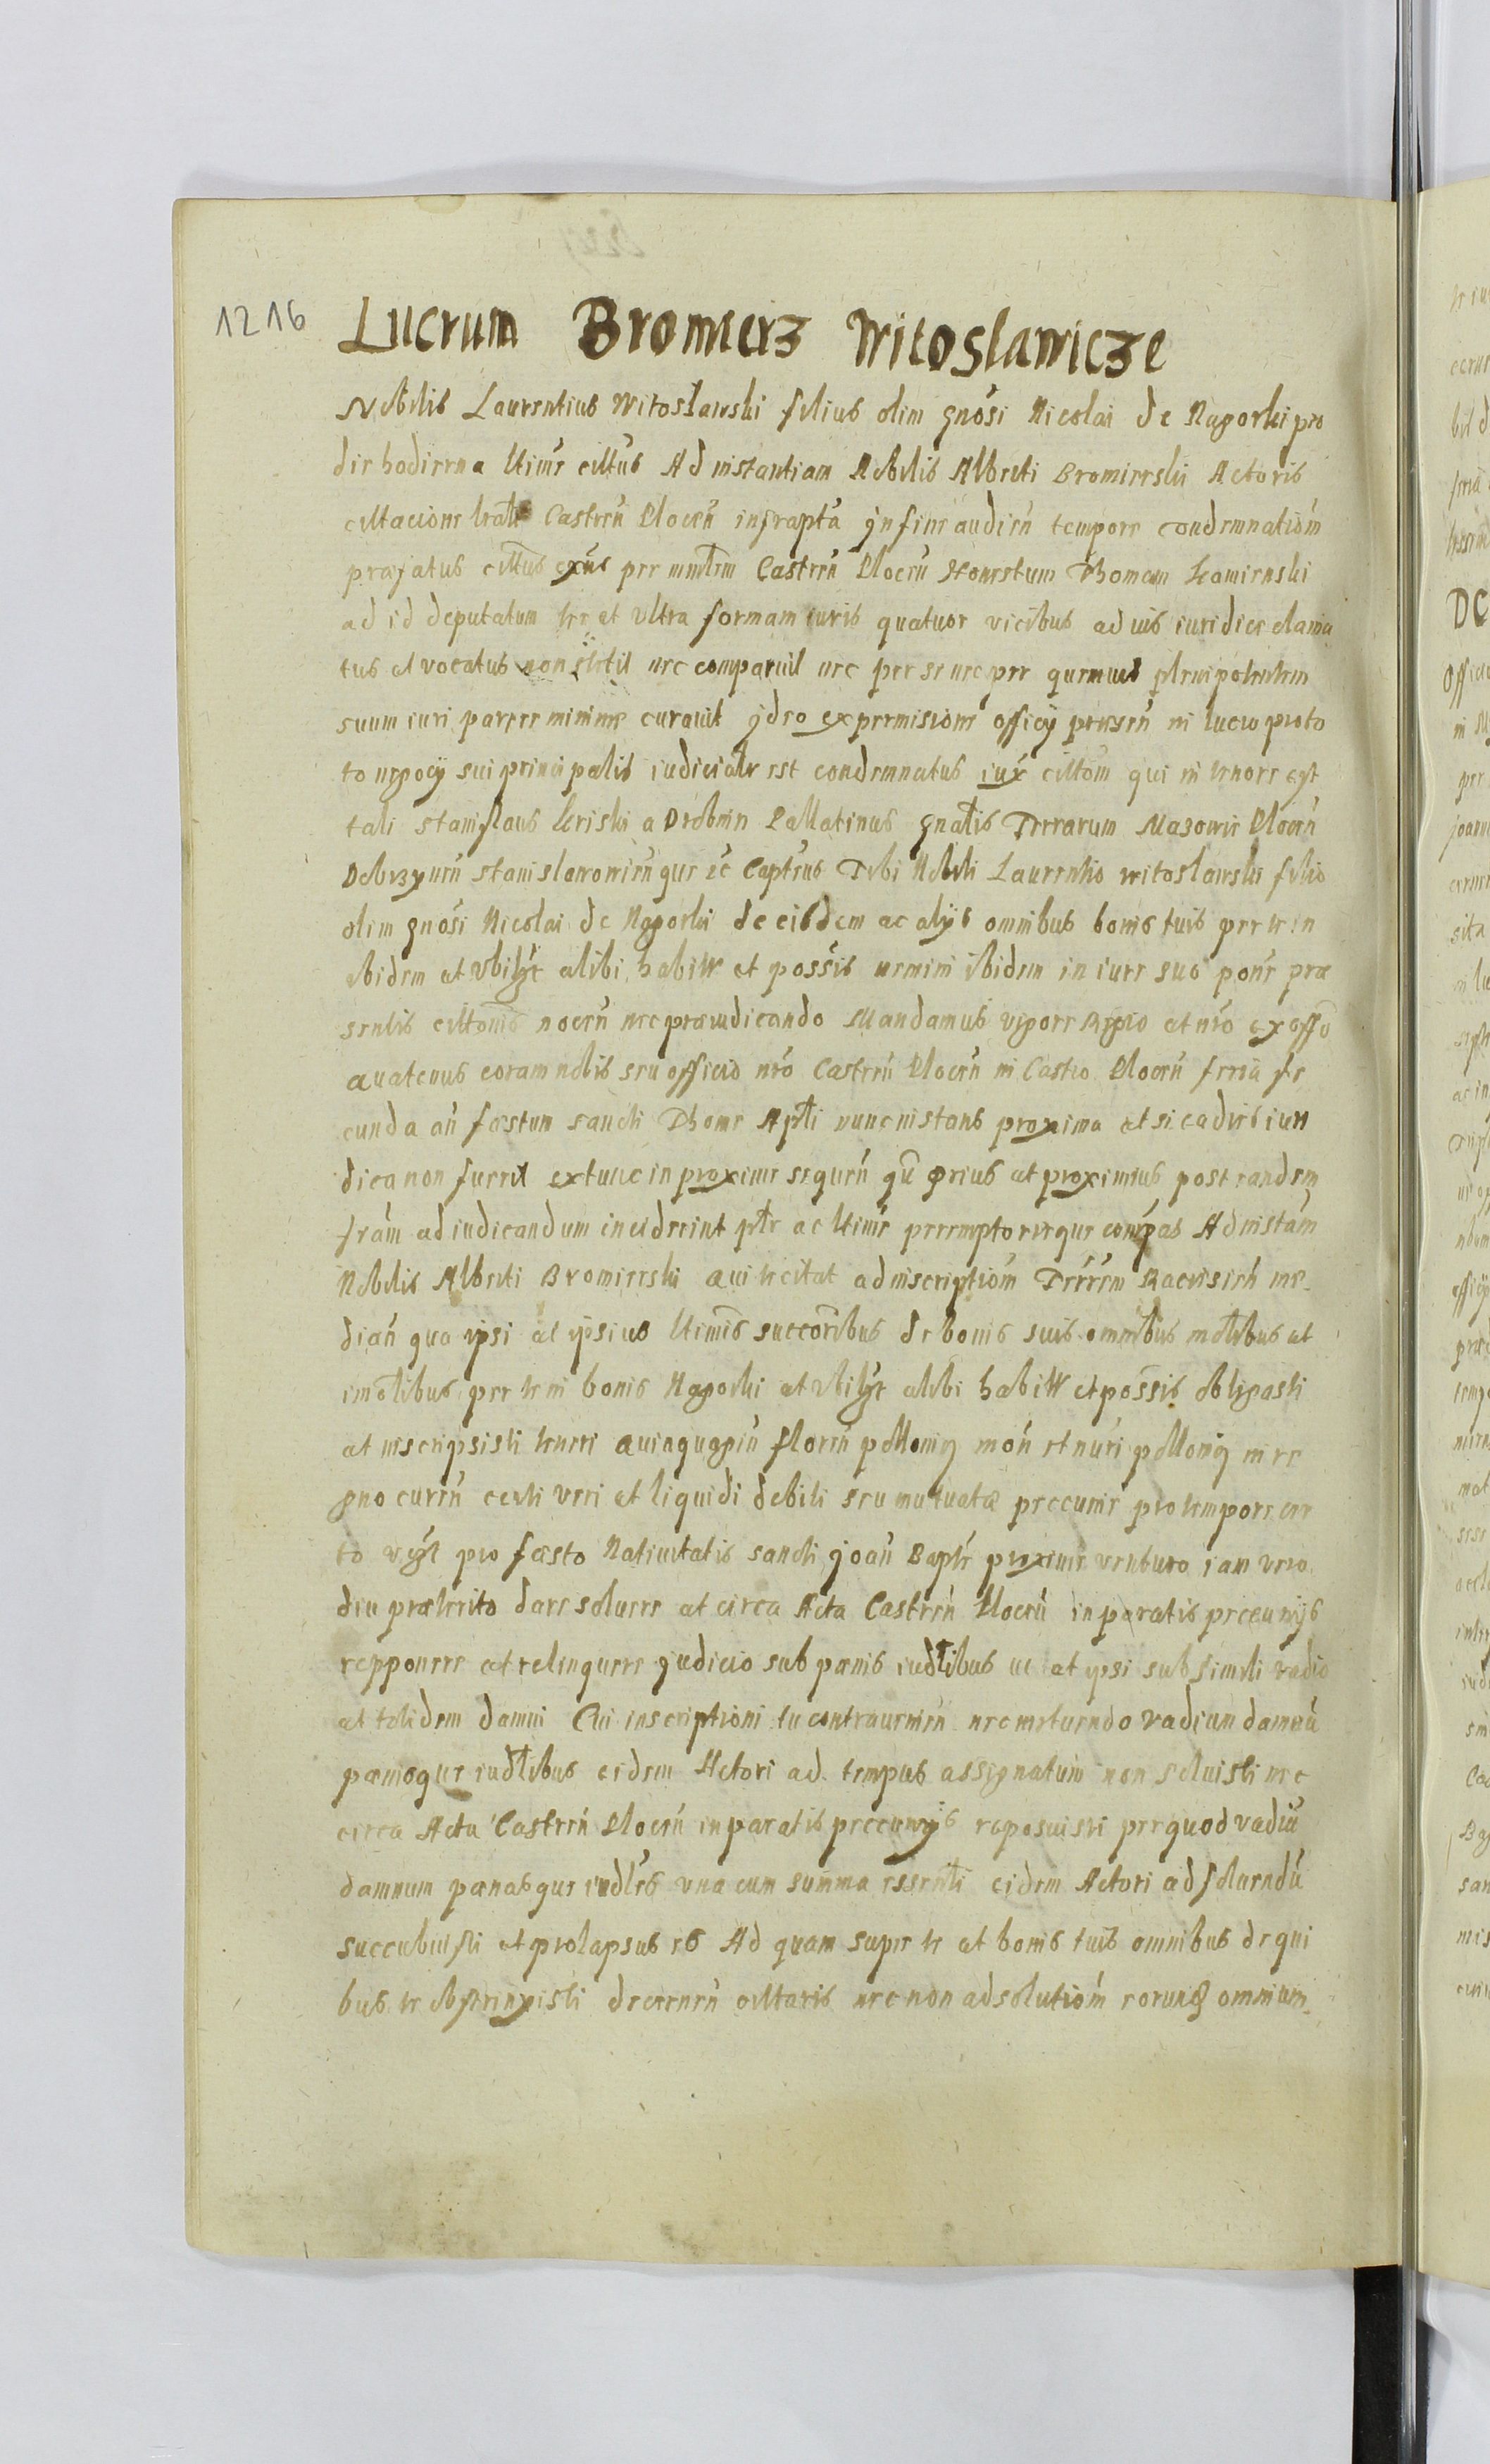 1216 Lucrum Bromierz Witoslawicze
Nobilis Laurentius Witoslawski filius olim gnosi Nicolai de Nagorki pro
die hodierna ltime cittus Ad instantiam Nobilis Alberti Bromierski Actoris
cittacione lrali Castren Plocen infrapta in fine audien tempore condemnatiom
prafatus cittus per mnltrm Castren Plocen Honestum Thomam kamienski
ad id deputatum ter et vltra formam iuris quatuor vicibus ad uis iuridice clama
tus et vocatus non stetit nec comparuit nec per se nec per quemuis plenipotentem
suum iuri parere minime curauit jdeo ex permisione officÿ prusen in lucro pro to
to negocÿ sui principalis iudicialr est condemnatus iux cittom qui in tenore est
tali Stanislaus kriski a Drobnin Pallatinus gnalis Terrarum Mazowie Plocen
Dobrzynen Stanislawowienque zc Capteus Tibi Nobili Laurentio witoslawski filio
olim gnosi Nicolai de Nagorki de eisdem ac alijs omnibus bonis tuis per te in
ibidem et vbilzt alibi habitt et possis nemini ibidem in iure suo ponr præ
sentis cittonis nocen nec præiudicando Mandamus vigore Regio et nro ex offo
Quatenus coram nobis seu officio nro Castren Plocen in Castro Plocen feria se
cunda an festum sancti Thome Apli nunc instans proxima et si ea dies iuri
dica non fuerit extunc in proxime sequen qu prius et proximius post eandem
fram ad iudicandum inciderint ptr ac ltime peremptorieque compas Ad instam
Nobilis Alberti Bromierski Qui te citat ad inscriptiom Terrem Racisien me
dian qua ipsi et ipsius ltimis succoribus de bonis suis omnibus moblibus et
imolibus per te in bonis Nagorki et vbilzt alibi habitt et possis obligasti
et inscripsisti teneri Quinquagin floren pollonig mon et nuri pollonig in re
gno curen certi veri et liquidi debiti seu mutuatæ pecunie pro tempore cer
to vzt pro festo Natiuitatis sancti joan Bapte proxime venturo iam vero
diu præterito dare soluere et circa Acta Castren Plocen in paratis pecunijs
repponere et relinquere judicio sub pænis iudlibus ac et ipsi sub simili vadio
et totidem damni Cui inscriptioni tu contrauenien nec metuendo vadium damnu
pænisque iudlibus eidem Actori ad tempus assignatum non soluisti nec
circa Acta Castren Plocen in paratis pecunijs reposuisti per quod vadiu
damnum pænasque iudles vna cum summa essenti eidem Actori ad soluendu
succubuisti et prolapsus es Ad quam super te et bonis tuis omnibus de qui
bus te obstrinxisti decernen cittaris nec non ad solutiom eorumq omnium